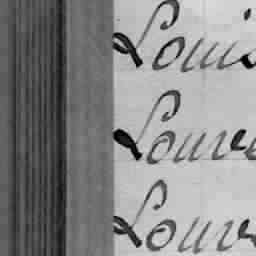 Louis
Louve
Louv